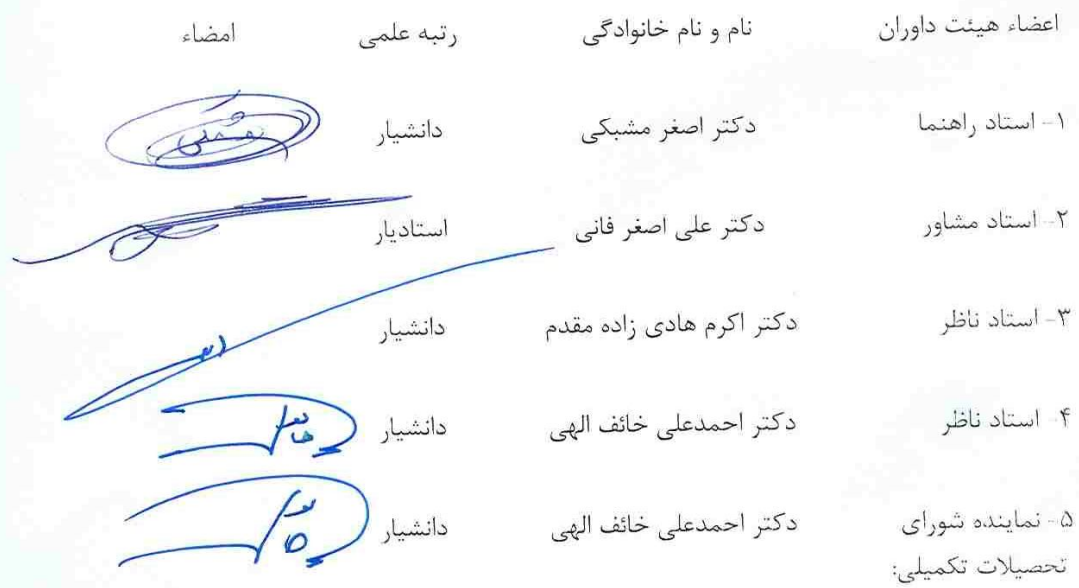 اعضاء هیئت داوران نام و نام خانوادگی رتبه علمی امضاء
۱- استاد راهنما دکتر اصغر مشبکی دانشیار
۲- استاد مشاور دکتر علی اصغر فانی استادیار
۳- استاد ناظر دکتر اکرم هادی زاده مقدم دانشیار
۴- استاد ناظر دکتر احمدعلی خائف الهی دانشیار
۵- نماینده شورای دکتر احمدعلی خائف الهی دانشیار
تحصیلات تکمیلی: